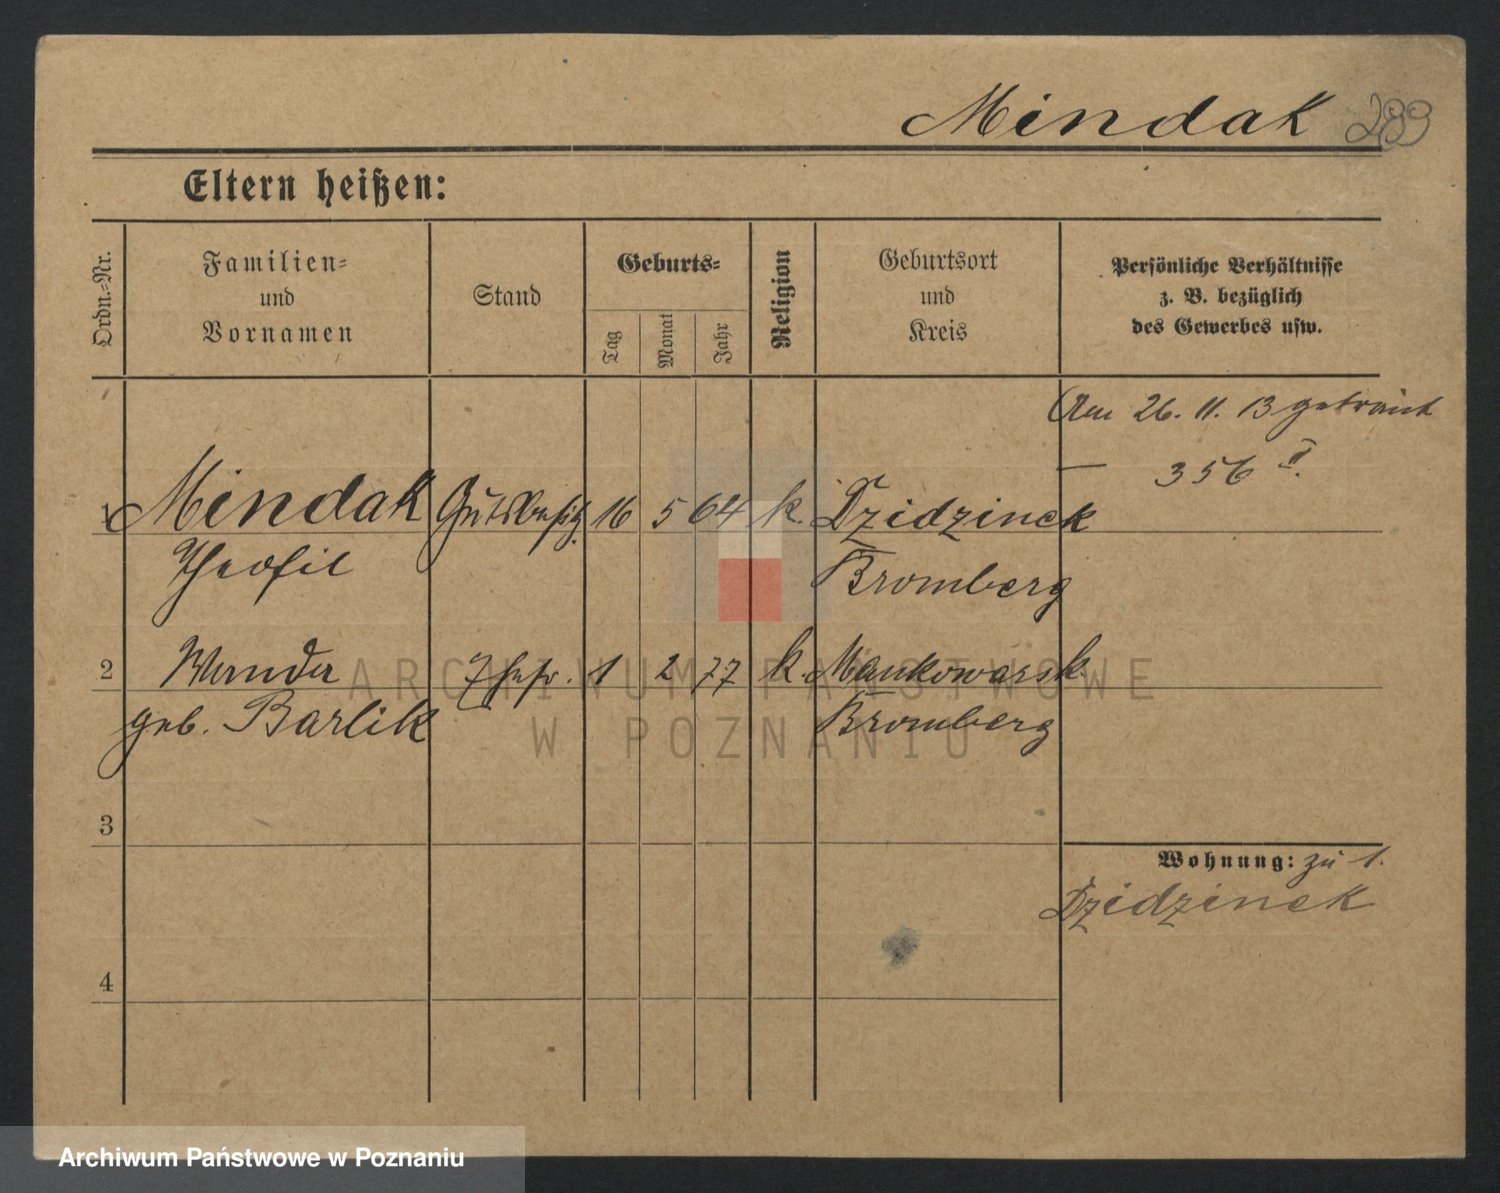 Mindak 283
Eltern heißen:
Ordn.-Nr.
Familien-
und
Vornamen
Stand
Geburts-
Tag
Monat
Jahr
Religion
Geburtsort
und
Kreis
Persönliche Verhältnisse
z. B. bezüglich
des Gewerbes usw.
Am 26. 11. 13 getraut
— 356 II.
1 Mindak Gutsbesitz. 16 5 64 k. Dzidzinek
Theofil Bromberg
2 Wanda Ehefr. 1 2 77 k. Mankowarsk.
geb. Barlik Bromberg
3
Wohnung: zu 1.
Dzidzinek
4
ARCHIWUM PAŃSTWOWE
W POZNANIU
Archiwum Państwowe w Poznaniu